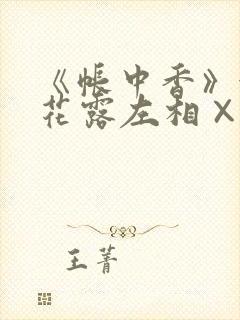 《帐中香》
花露左相 X
王菁